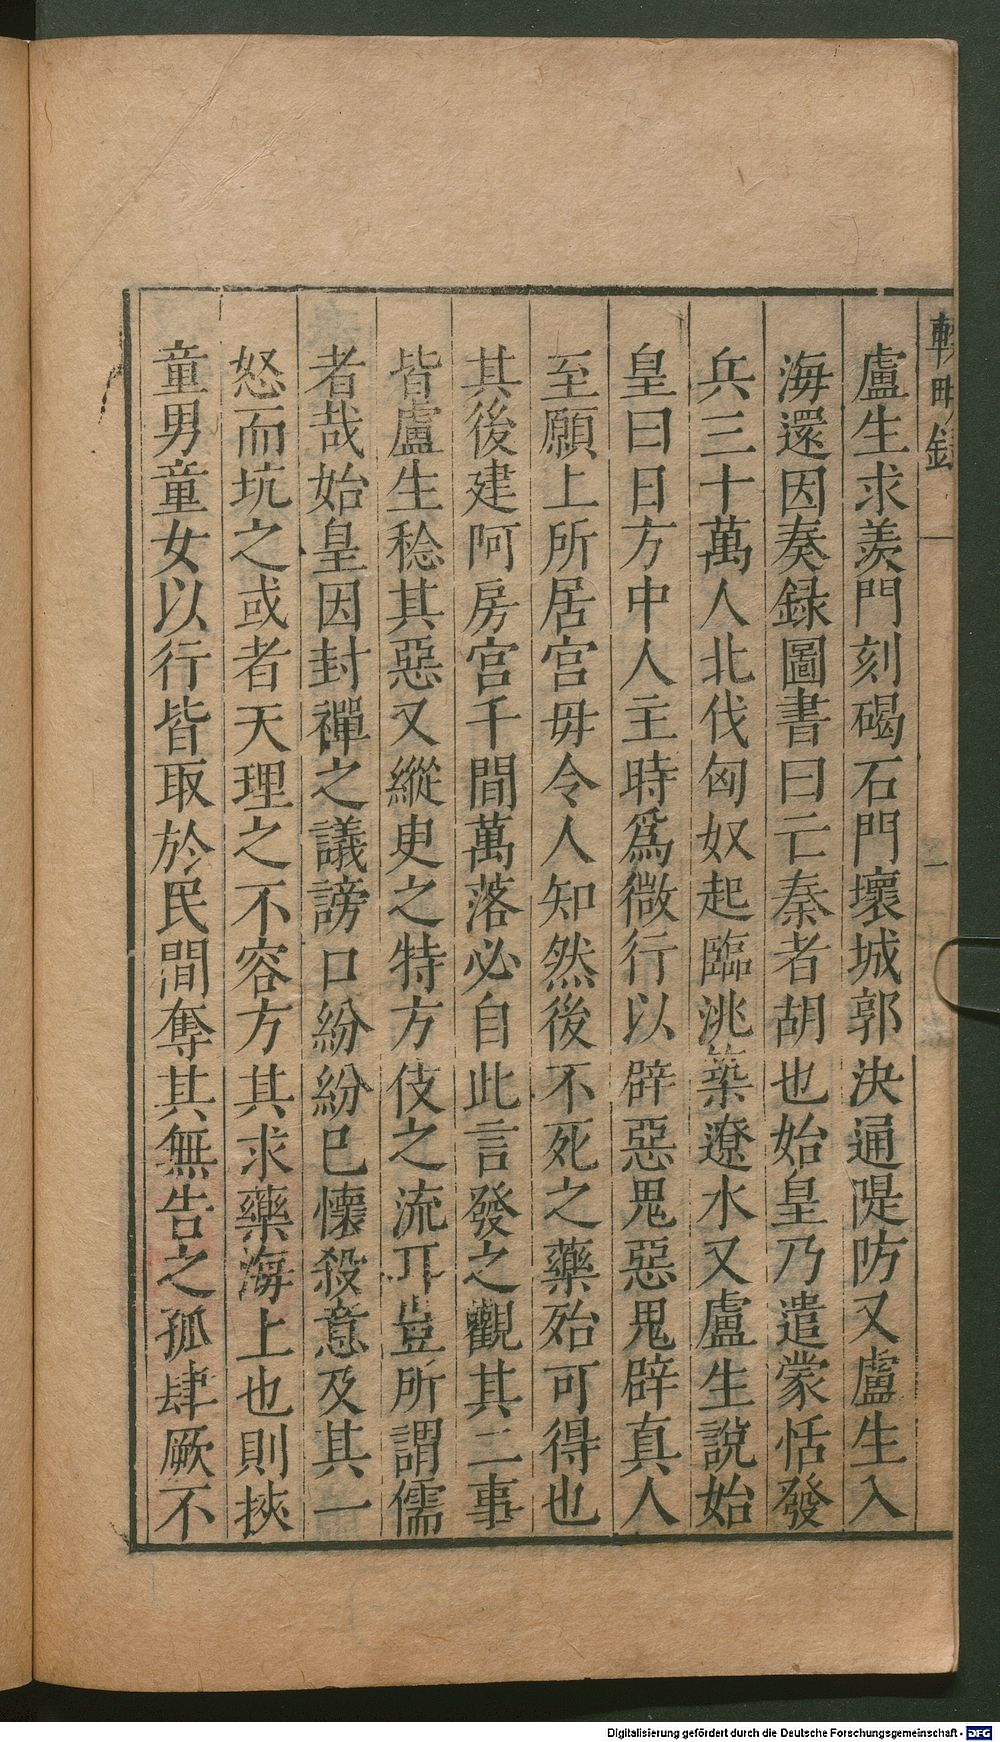 盧生求羨門刻碣石門壞城郭決通隄防又盧生入
海還因奏録圖書曰亡秦者胡也始皇乃遣蒙恬發
兵三十萬人北伐匈奴起臨洮築遼水又盧生說始
皇曰日方中人主時爲微行以辟惡鬼惡鬼辟真人
至願上所居宮毋令人知然後不死之藥殆可得也
其後建阿房宮千間萬落必自此言發之觀其二事
皆盧生稔其惡又縱臾之特方伎之流耳豈所謂儒
者哉始皇因封禪之議謗口紛紛已懷殺意及其一
怒而坑之或者天理之不容方其求藥海上也則挾
童男童女以行皆取於民間奪其無告之孤肆厥不
Digitalisierung gefördert durch die Deutsche Forschungsgemeinschaft - DFG